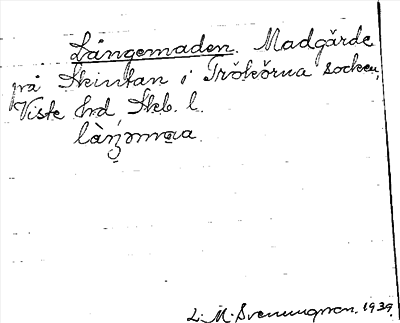 Långemaden. Madgärde
på Skintan i Tråkärna socken,
Viste hd, Skb. l.
L. M. Svenungsson. 1939.